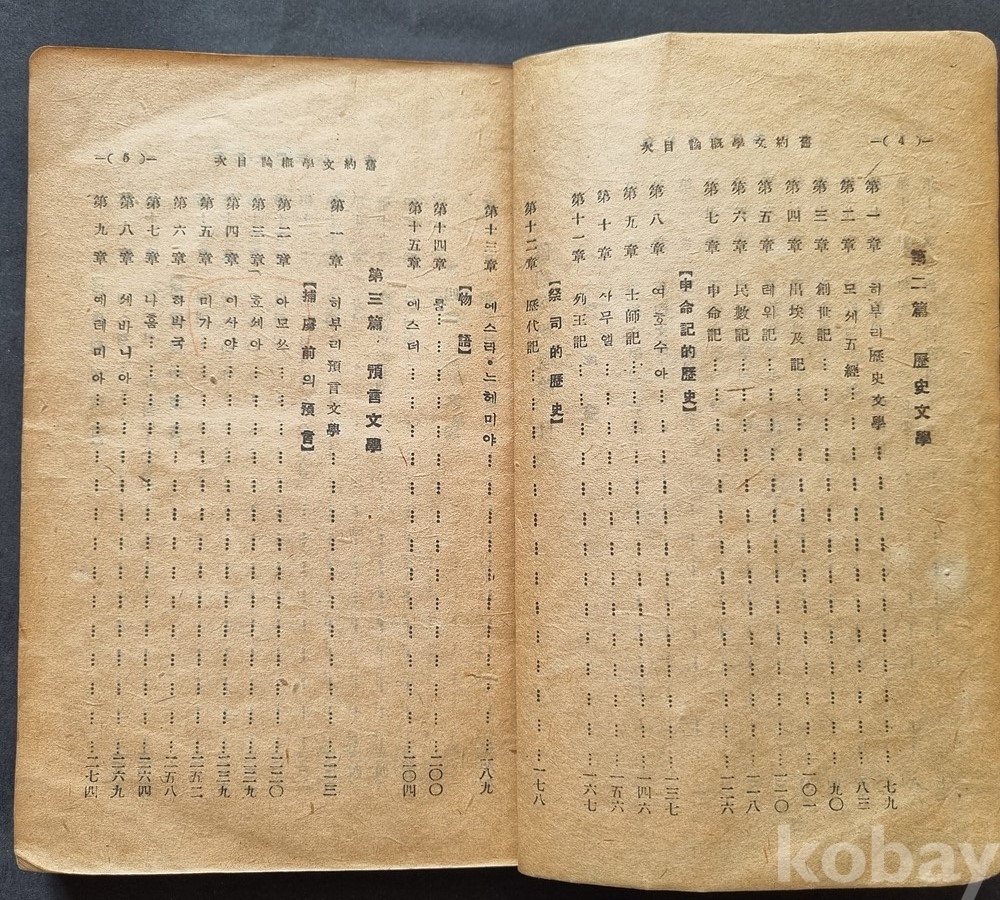 —( 4 )—
舊約文學槪論目次
第二篇 歷史文學
第一章 히부리歷史文學……七九
第二章 모세五經……八三
第三章 創世記……九〇
第四章 出埃及記……一〇一
第五章 레위記……一一〇
第六章 民數記……一一八
第七章 申命記……一二六
【申命記的歷史】
第八章 여호수아……一三七
第九章 士師記……一四六
第十章 사무엘……五六
第十一章 列王記……一六七
【祭司的歷史】
第十二章 歷代記……一七八
第十三章 에스라•느헤미야……一八九
【物語】
第十四章 룻……二〇〇
第十五章 에스더……二〇四
—( 5 )—
舊約文學槪論目次
第三篇 預言文學
第一章 히부리預言文學……二一三
【捕虜前의預言】
第二章 아모쓰……二二〇
第三章 호세아……
第四章 이사야……二三九
第五章 미가……二五二
第六章 하박국……二五八
第七章 나훔……二六四
第八章 세바니아……二六九
第九章 예레미아……二七四
kobay